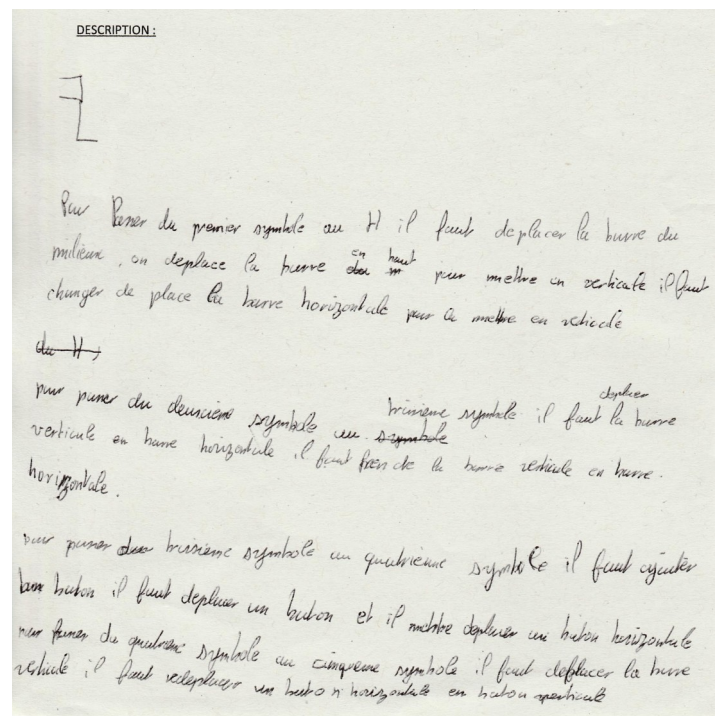 DESCRIPTION :
Pour Passer du premier symbole au H il faut deplacer la barre du
milieux, on deplace la barre en haut pour mettre en verticale il faut
changer de place la barre horizontale pour la mettre en verticale
du H,
pour passer du deuxième symbole au troisieme symbole il faut deplacer la barre
verticale en barre horizontale il faut la barre verticale en barre
horizontale.
pour passer troisieme symbole au quatrieme symbole il faut ajouter
baton il faut deplacer un baton et il deplacer un baton horizontale
pour passer du quatrieme symbole au cinqueme symbole il faut deplacer la barre
verticale il faut redeplacer un baton horizontale en baton verticale